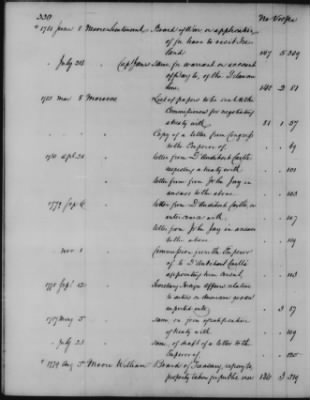 330 No Vol Pa
* 1781 June 8 Moore Lieutenant Board of War on application
of for leave to visit Ire
land 147 5 329
" July 28 Capt James same for warrant on account
of pay &c, of the Delaware
line 148 2 81
1785 mar 8 Morocco List of papers to be sent to the
Commissioners for negotiating
a treaty with 81 1 57
Copy of a letter from Congress
to the Emperor of 69
1780 letter from D'Audibert Caille
respecting a treaty with 101
letter from John Jay in
answer to the above 103
letter from D'Audibert Caille, on
with 107
letter from John Jay in answer
to the above 119
nov 1 Commission from the Emperor
of to D'Audibert Caille
appointing him Consul 113
Sept 12 Secretary Foreign affairs relative
to duties on American goods
imported into 3 57
1787 May 5 same, on form of ratification
of treaty with 109
July 23 same, of draft of a letter to the
Emperor of 125
* 1779 Aug 5 Moore William Board of Treasury, report, &c
property taken for public use 136 3 329